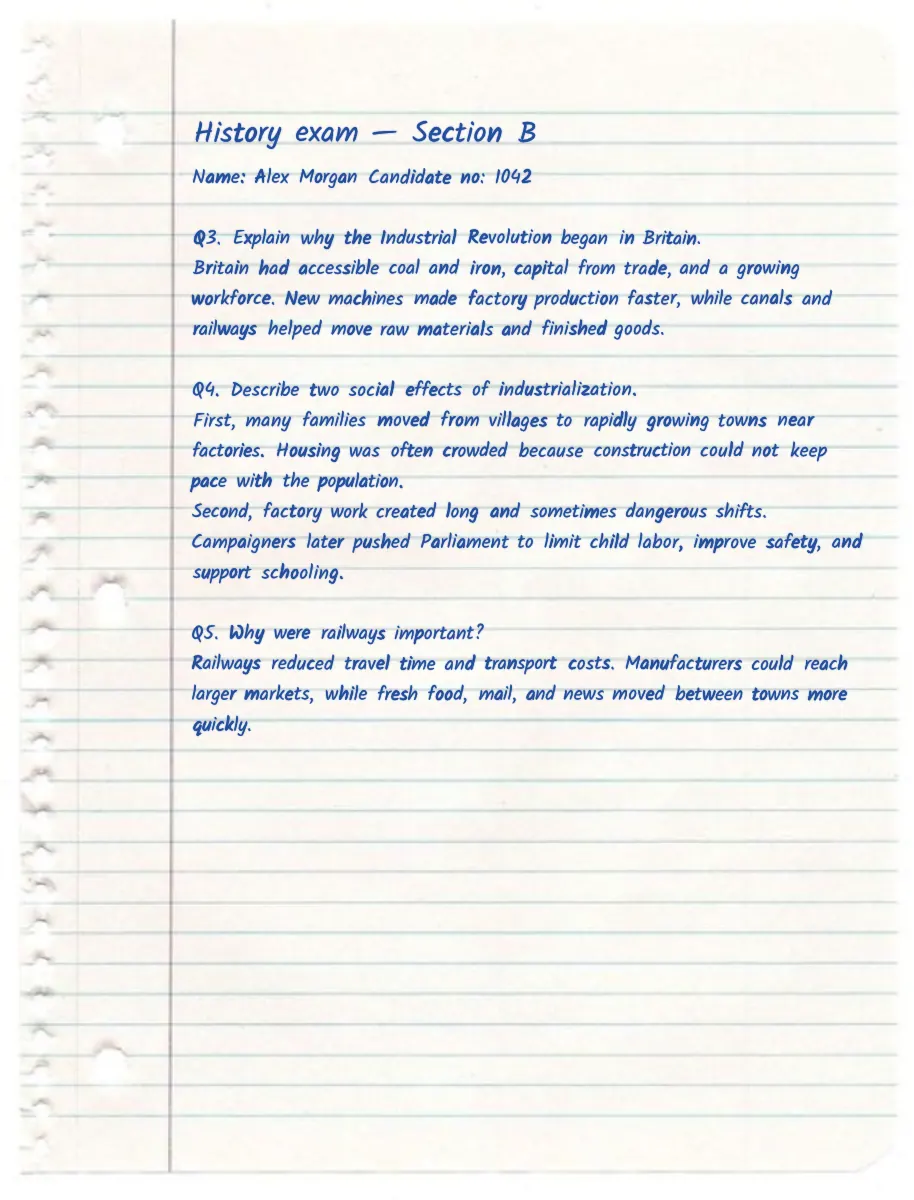 History exam — Section B
Name: Alex Morgan Candidate no: 1042
Q3. Explain why the Industrial Revolution began in Britain.
Britain had accessible coal and iron, capital from trade, and a growing
workforce. New machines made factory production faster, while canals and
railways helped move raw materials and finished goods.
Q4. Describe two social effects of industrialization.
First, many families moved from villages to rapidly growing towns near
factories. Housing was often crowded because construction could not keep
pace with the population.
Second, factory work created long and sometimes dangerous shifts.
Campaigners later pushed Parliament to limit child labor, improve safety, and
support schooling.
Q5. Why were railways important?
Railways reduced travel time and transport costs. Manufacturers could reach
larger markets, while fresh food, mail, and news moved between towns more
quickly.